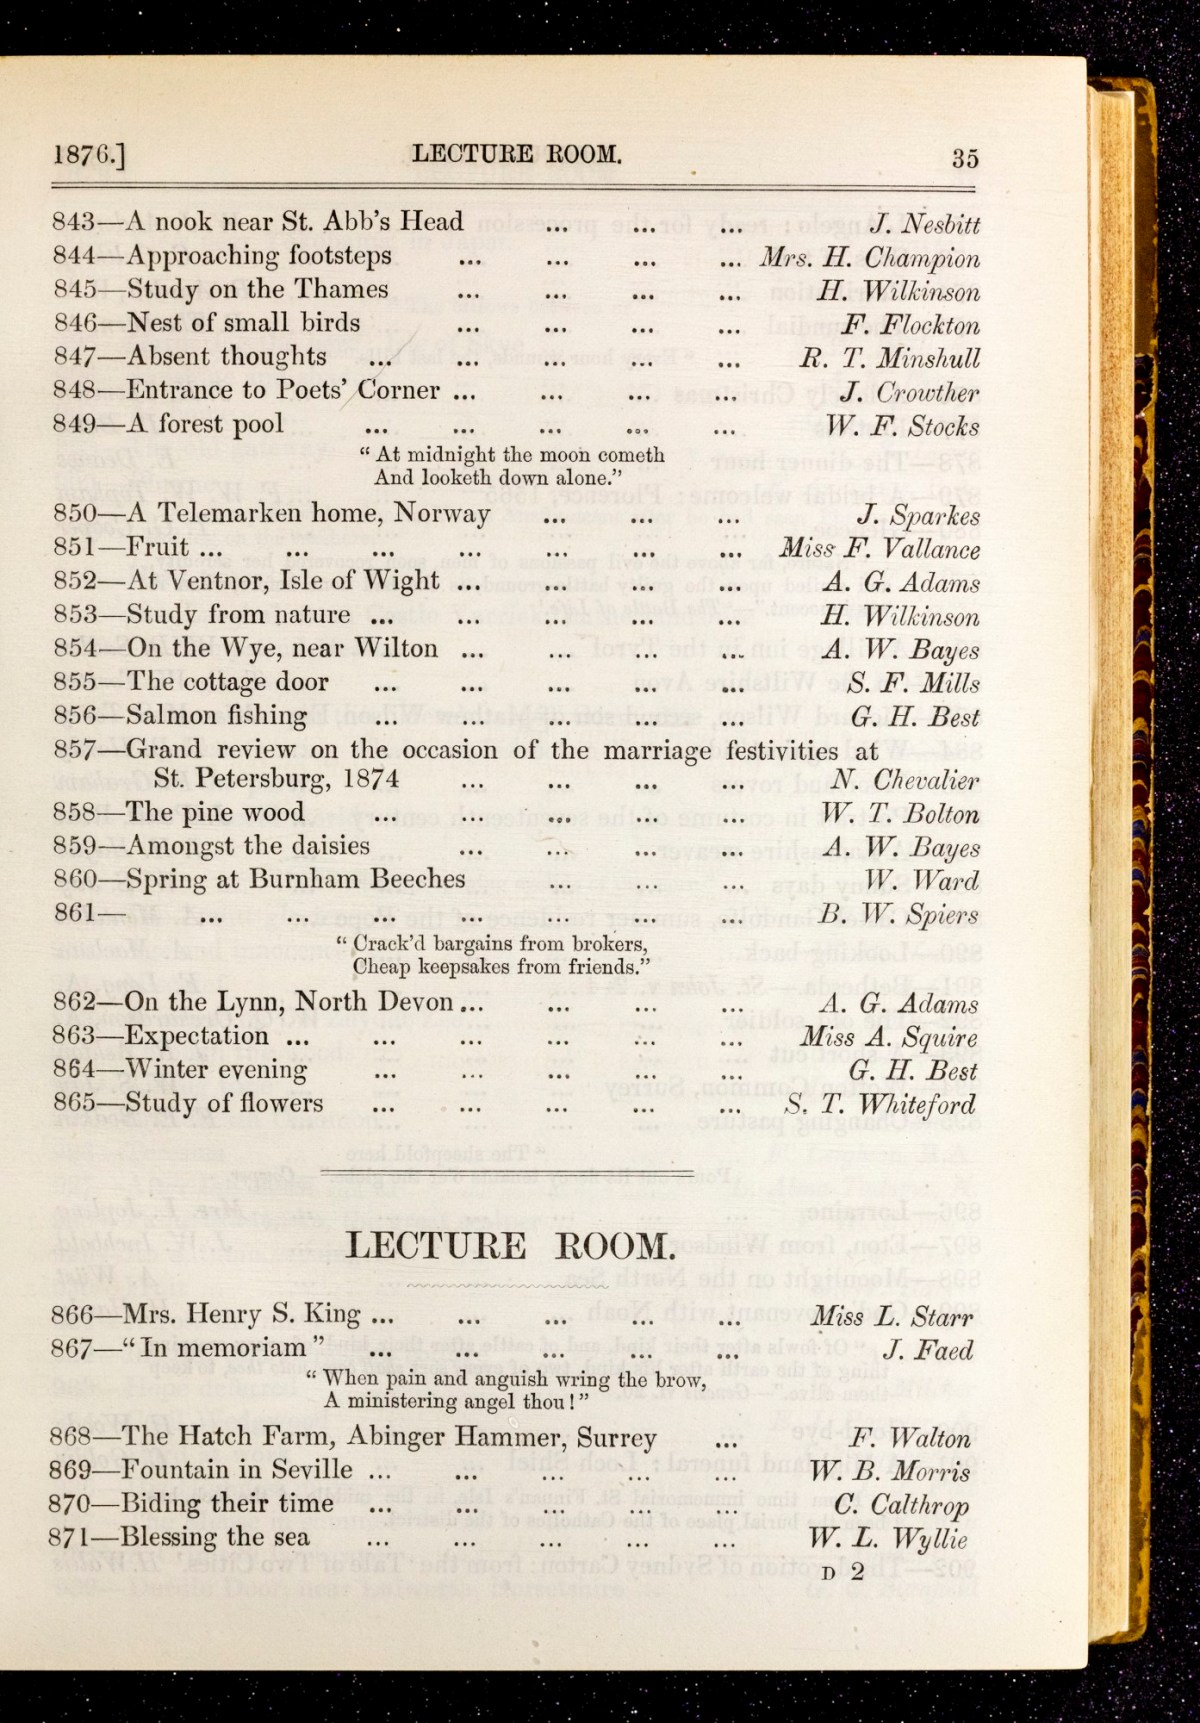 1876.] LECTURE ROOM. 35
843—A nook near St. Abb's Head ... ... ... J. Nesbitt
844—Approaching footsteps ... ... ... ... Mrs. H. Champion
845—Study on the Thames ... ... ... ... H. Wilkinson
846—Nest of small birds ... ... ... ... F. Flockton
847—Absent thoughts ... ... ... ... ... R. T. Minshull
848—Entrance to Poets' Corner ... ... ... ... J. Crowther
849—A forest pool ... ... ... ... ... W. F. Stocks
“At midnight the moon cometh
And looketh down alone.”
850—A Telemarken home, Norway ... ... ... J. Sparkes
851—Fruit ... ... ... ... ... ... ... Miss F. Vallance
852—At Ventnor, Isle of Wight ... ... ... ... A. G. Adams
853—Study from nature ... ... ... ... ... H. Wilkinson
854—On the Wye, near Wilton ... ... ... ... A. W. Bayes
855—The cottage door ... ... ... ... ... S. F. Mills
856—Salmon fishing ... ... ... ... ... G. H. Best
857—Grand review on the occasion of the marriage festivities at
St. Petersburg, 1874 ... ... ... ... N. Chevalier
858—The pine wood ... ... ... ... ... W. T. Bolton
859—Amongst the daisies ... ... ... ... A. W. Bayes
860—Spring at Burnham Beeches ... ... ... W. Ward
861— ... ... ... ... ... ... ... B. W. Spiers
“Crack'd bargains from brokers,
Cheap keepsakes from friends.”
862—On the Lynn, North Devon ... ... ... ... A. G. Adams
863—Expectation ... ... ... ... ... ... Miss A. Squire
864—Winter evening ... ... ... ... ... G. H. Best
865—Study of flowers ... ... ... ... ... S. T. Whiteford
LECTURE ROOM.
866—Mrs. Henry S. King ... ... ... ... ... Miss L. Starr
867—“In memoriam” ... ... ... ... ... J. Faed
“When pain and anguish wring the brow,
A ministering angel thou!”
868—The Hatch Farm, Abinger Hammer, Surrey ... F. Walton
869—Fountain in Seville ... ... ... ... ... W. B. Morris
870—Biding their time ... ... ... ... ... C. Calthrop
871—Blessing the sea ... ... ... ... ... W. L. Wyllie
D 2